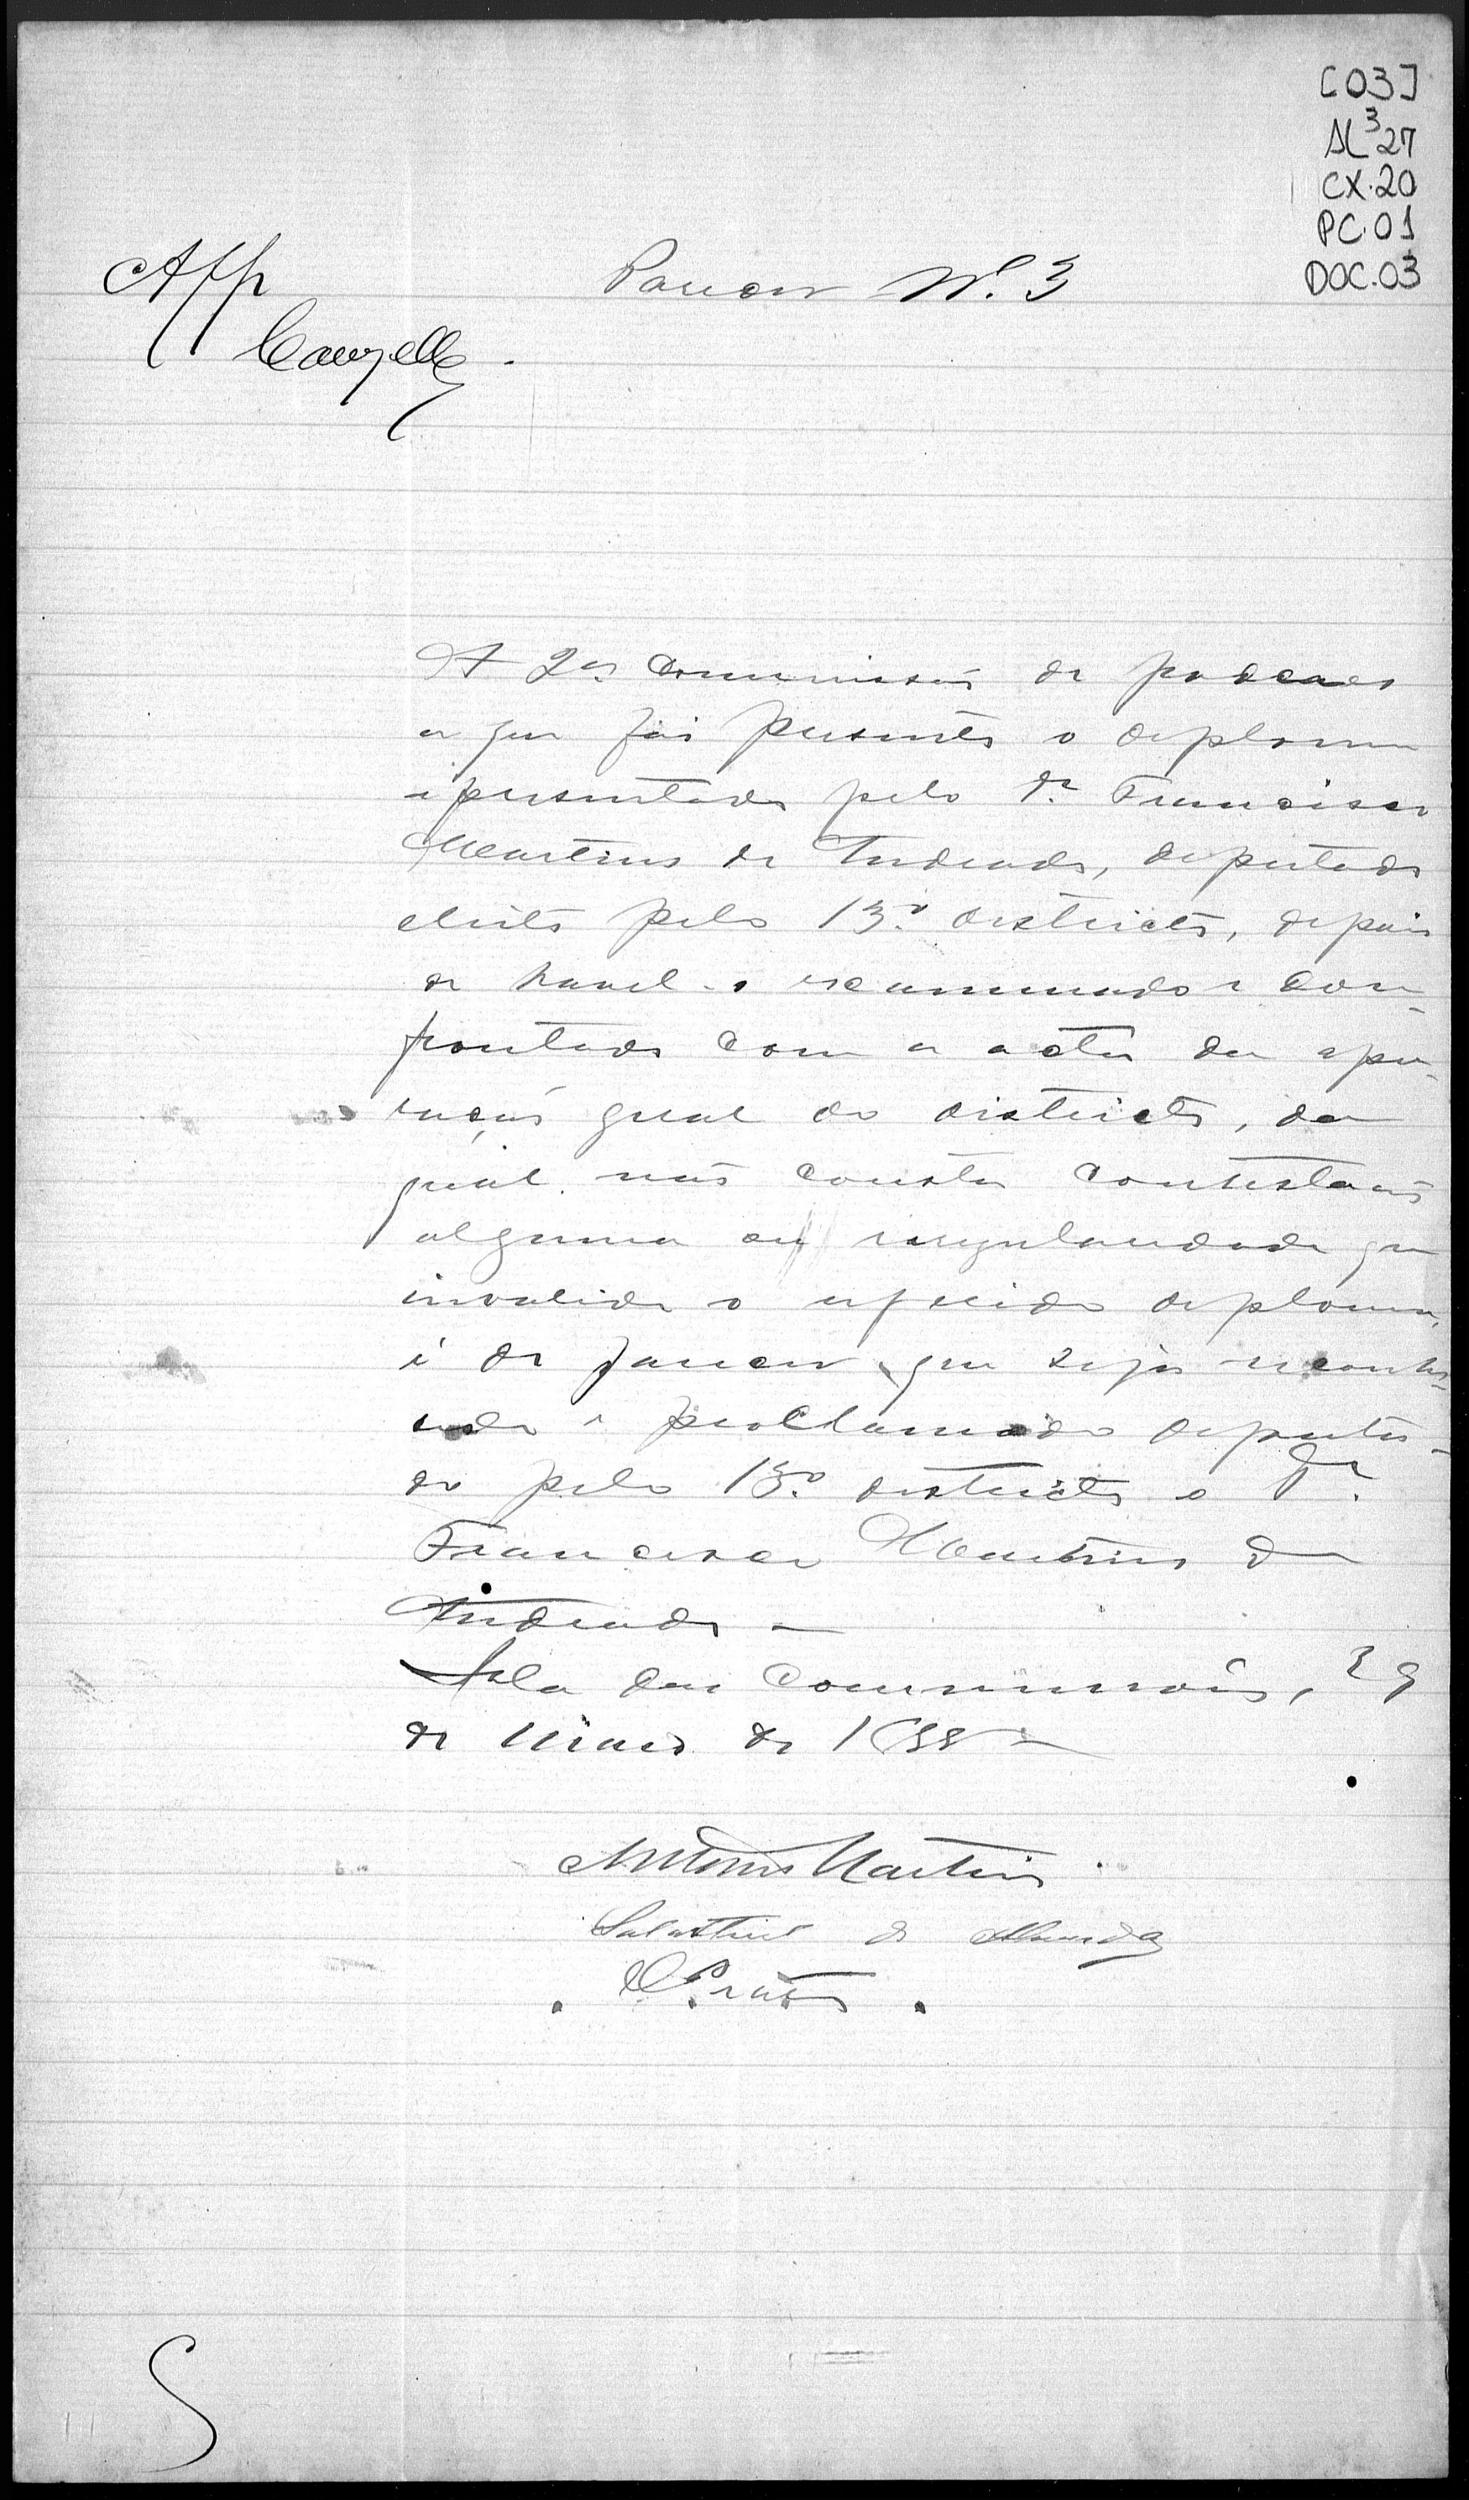 [03]
AL³27
CX.20
PC.01
DOC.03
App
Parecer Nº. 3
A 2ª Commissão de poderes
a que foi presente o diploma
apresentado pelo Dr. Francisco
Martins de Andrade, deputado
eleito pelo 13.º districto, depois
de havel-o examinado e con-
frontado com a acta da apu-
ração geral do districto, da
qual não consta contestação
alguma ou irregularidade que
invalide o referido diploma,
é de parecer que seja reconhe-
cido e proclamado deputa-
do pelo 13.º districto o Dr.
Francisco Martins de
Andrade —
Sala das Commissões, 29
de Maio de 1888 —
Antonio Martins
de Almeida
Prates
S